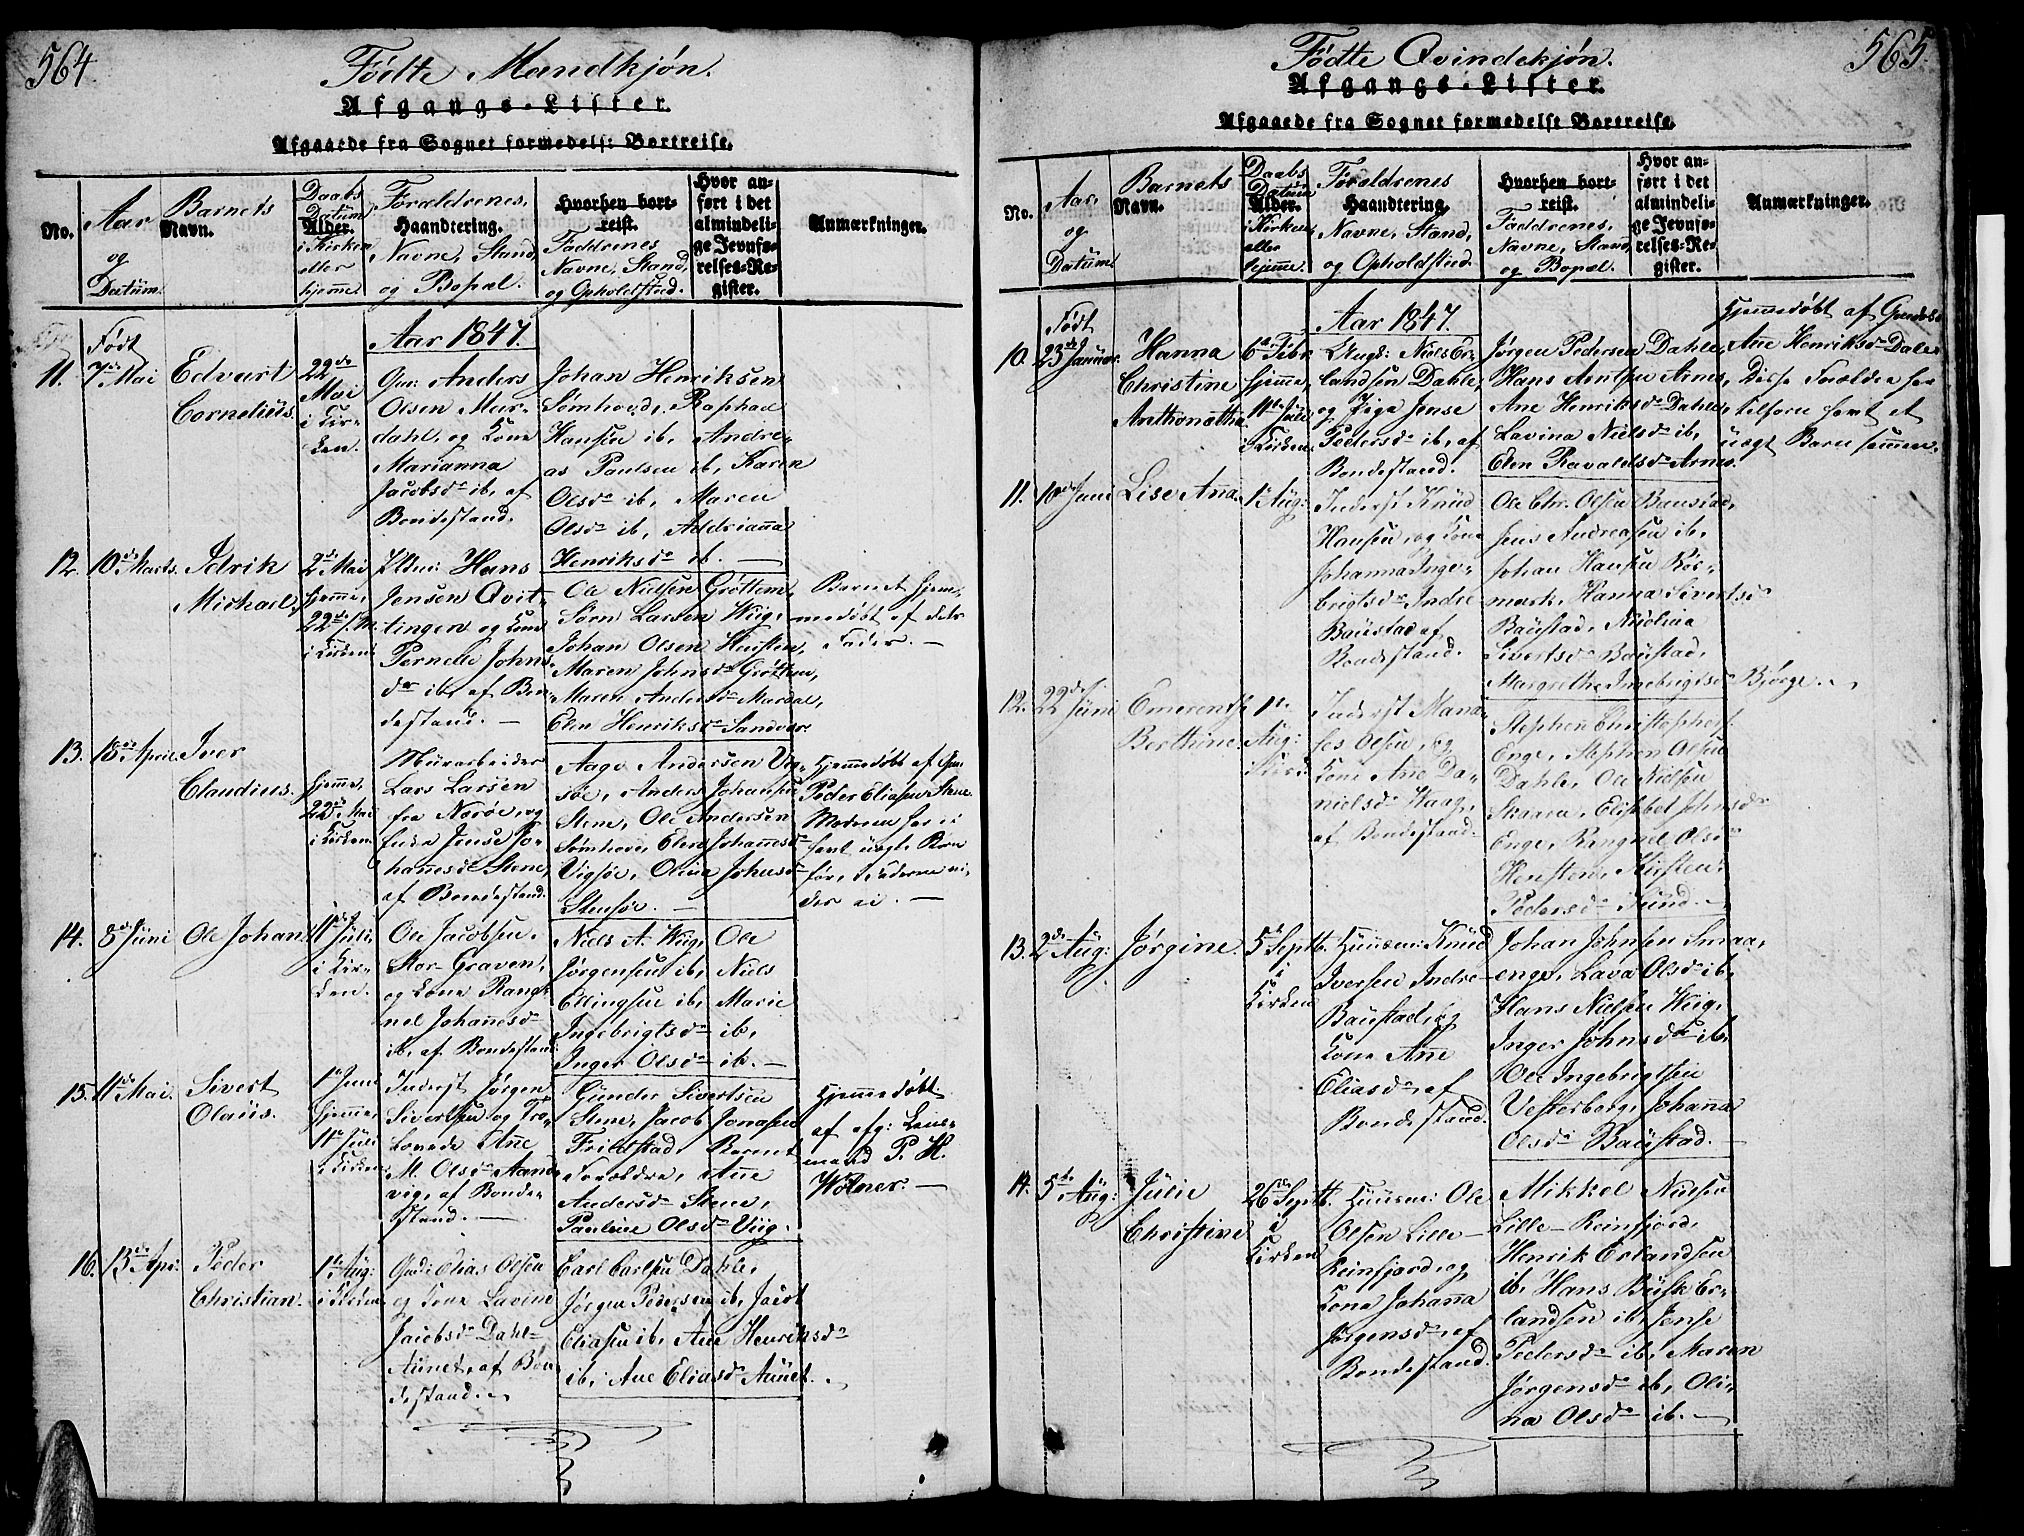 564.
Fødte Mandkjøn.
Afgangs-Lister.
Afgaaede fra Sognet formedelst Bortreise.
No.
Aar
og
Datum.
Barnets
Navn.
Daabs
Datum
Alder.
i Kirken
eller
hjemme.
Forældrenes
Haandtering.
Navne, Stand,
og Bopæl.
Hvorhen bort-
reist.
Faddrenes
Navne, Stand,
og Opholdsted.
Hvor an-
ført i det
almindeli-
ge Jevnfø-
relses-Re-
gister.
Anmærkninger.
Aar 1847.
Født
11.
7de Mai
Edvart
Cornelius.
22de
Mai
i Kir-
ken.
Gm: Anders
Olsen Mur-
dahl, og Kone
Marianna
Jacobsdr ib, af
Bondestand.
Johan Henriksen
Sømhovd, Raphael
Hansen ib, Andre-
as Paulsen ib, Karen
Olsdr ib, Maren
Olsdr ib, Addrianna
Henriksdr ib.
12.
10de Marts.
Idrik
Michael,
2de Mai
hjemme,
22de s. M.
i Kirken
Hans
Jensen Qvit-
tingen og Kone
Pernelle Johns
dr ib, af Bon-
destand. —
Ole Nielsen Grøttem,
Sørn Larsen Wiig,
Johan Olsen Hersten,
Maren Johnsdr Grøttem,
Maren Andersdr Mardal,
Elen Henriksdr Sandvær.
Barnet hjem-
medøbt af dets
Fader. —
13.
18de April.
Iver
Claudius.
hjemme,
22de Mai
i Kirken.
Murarbeider
Lars Larsen
fra Norøe, og
Enke Jense Jo-
hannesdr Stene,
af Bondestand.
Aage Andersen Vig-
søe, Anders Johansen
Stene, Ole Andersen
Sømhovd, Elen Johannesdr
Vigsøe, Olina Johnsdr
Stensøe. —
Hjemmedøbt af Gm
Peder Eliasen Stene.
Moderen har ei
havt uægte Barn
før, Faderen vi-
des ei. —
14.
8de Juni
Ole Johan
11te Juli
i Kir-
ken.
Ole Jacobsen
Stor-Graven,
og Kone Rang-
nel Johannesdr
ib, af Bondestand.
Niels A. Wiig, Ole
Jørgensen ib, Niels
Ellingsen ib, Marie
Ingebrigtsdr ib,
Inger Olsdr ib. —
15.
11te Mai.
Sivert
Olaüs.
1te Juni
hjemme,
11te Juli
i Kirken
Inderst Jørgen
Sivertsen og Tro-
lovede Ane
M. Olsdr Aand-
vig, af Bonde-
stand. —
Gunder Sivertsen
Stene, Jacob Jonasen
Frielstad, Barnets
Forældre, Ane
Andersdr Stene,
Pauline Olsdr Viig.
Hjemmedøbt
af afg: Lens-
mand P. H.
Wolner. —
16.
13de Apr.
Peder
Christian.
1te Aug:
i Kirken.
Gmd: Elias Olsen
og Kone Lavine
Jacobsdr Dahl-
Aunet, af Bon-
destand.
Carl Carlsen Dahle,
Jørgen Pedersen ib, Jacob
Eliasen ib, Ane Henriksdr
ib, Ane Eliasdr Aunet.
565.
Fødte Qvindekjøn.
Afgangs-Lister.
Afgaaede fra Sognet formedelst Bortreise.
No.
Aar
og
Datum.
Barnets
Navn.
Daabs
Datum
Alder.
i Kirken
eller
hjemme.
Forældrenes
Haandtering.
Navne, Stand,
og Opholdsted.
Hvorhen bort-
reist.
Faddrenes
Navne, Stand,
og Bopæl.
Hvor an-
ført i det
almindeli-
ge Jevnfø-
relses-Re-
gister.
Anmærkninger.
Aar 1847.
Født
10.
23de Januar.
Hanna
Christine
Anthonetha
6te Febr.
hjemme,
11te Juli
i Kirken.
Ungk: Niels Er-
landsen Dahle,
og Piga Jense
Pedersdr ib, af
Bondestand.
Jørgen Pedersen Dahle,
Hans Arntsen Arnes,
Ane Henriksdr Dahle,
Lavina Nielsdr ib,
Elen Ravaldsdr Arnes.
Hjemmedøbt af
Ane Henriksdr Dale.
Disse Forældre har
tilforn havt et
uægt Barn sammen.
11.
10de Juni
Lise Anna.
1te Aug:
Inderst Knud
Hansen, og Kone
Johanna Inge-
brigtsdr Indre
Baustad af
Bondestand.
Ole Chr. Olsen Baustad,
Jens Andreasen ib,
Johan Hansen Rør-
mark, Hanna Sivertsdr
Baustad, Nicolina
Sivertsdr Baustad,
Margrethe Ingebrigtsdr Bjørge.
12.
22de Juni
Emerenthe
Berthine.
1te
Aug:
Inderst Mana-
ses Olsen, og
Kone Ane Da-
nielsdr Haag,
af Bondestand.
Stephen Christophers.
Enge, Stephen Olsen
Dahle, Ole Nielsen
Skaaren, Elisabet Johnsdr
Enge, Rangnel Olsdr
Hensten, Kirsten
Pedersdr Sund.
13.
2de Aug:
Jørgine.
5te Septb.
i
Kirken
Huusm: Knud
Iversen Indre
Baustad, og
Kone Ane
Eliasdr af
Bondestand.
Johan Johnsen Smaa-
enge, Lava Olsdr ib,
Hans Nielsen Wiig,
Inger Johnsdr ib,
Ole Ingebrigtsen
Vesterberg, Johanna
Olsdr Baustad. —
14.
5te Aug:
Julie
Christine
26de Septb.
i
Kirken
Huusm: Ole
Olsen Lille-
Reinfjord, og
Kone Johanna
Jørgensdr, af
Bondestand.
Mikkel Nielsen
Lille-Reinfjord,
Henrik Erlandsen
ib, Hans Busk Er-
landsen ib, Jense
Pedersdr ib, Maren
Jørgensdr ib, Oli-
na Olsdr ib. —